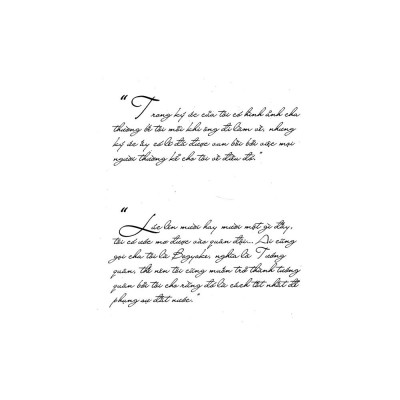 “Trong ký ức của tôi có hình ảnh cha
thường ôm tôi mỗi khi ông đi làm về, nhưng
ký ức ấy có lẽ đã được vun bồi bởi việc mọi
người thường kể cho tôi về điều đó.”
“Lúc lên mười hay mười một gì đấy,
tôi có ước mơ được vào quân đội... Ai cũng
gọi cha tôi là Bogyoke, nghĩa là Tướng
quân, thế nên tôi cũng muốn trở thành tướng
quân bởi tôi cho rằng đó là cách tốt nhất để
phụng sự đất nước.”